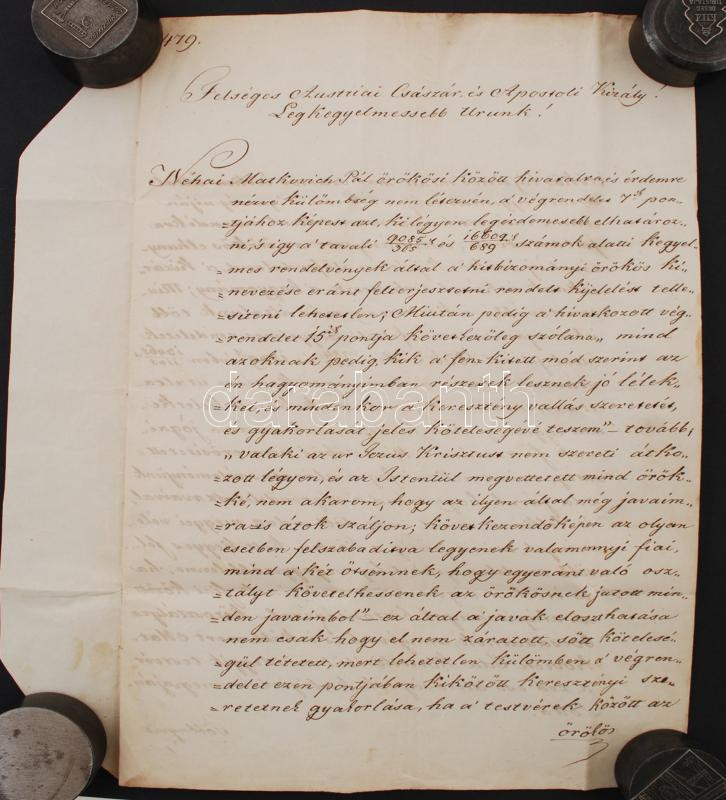 479.
Felséges Austriai Császár, és Apostoli Király!
Legkegyelmessebb Urunk!
Néhai Matkovich Pál örökösi között hivatalra, és érdemre
nézve külömbség nem létezvén, a' végrendelet 7ik pon„
„tjához képest azt, ki légyen legérdemesebb elhatároz„
„ni, 's így a' tavali 9085/565 és 16604/689 számok alatti kegyel„
„mes rendelvények által a' hitbizományi örökös ki„
„nevezése eránt felterjesztetni rendelt kijelelést telle„
„síteni lehetetlen; Miután pedig a' hivatkozott vég„
„rendelet 15ik pontja következöleg szólana „mind
azoknak pedig, kik a' fenn kitett mód szerint az
én hagyományimban részesek lesznek jó lélek„
„kel, és mindenkor a' keresztény vallás szeretetét,
és gyakorlását jeles kötelességévé teszem" – tovább;
„valaki az ur Jezus Krisztust nem szereti átko„
„zott légyen, és az Istentül megvettetett mind örök„
„ké, nem akarom, hogy az ilyen által még javaim„
„ra is átok szaljon; következendőképen az olyan
esetben felszabadítva legyenek valamennyi fiai,
mind a' két ötsémnek, hogy egyeránt való osz„
„tályt követelhessenek az örökösnek jutott min„
„den javaimbol" – ez által a' javak eloszhatása
nem csak hogy el nem záratott, sött kötelesé„
„gül tétetett, mert lehetetlen külömben a' végren„
„delet ezen pontjában kikötött keresztényi sze„
„retetnek gyakorlása, ha a' testvérek között az
örökös
darabanth